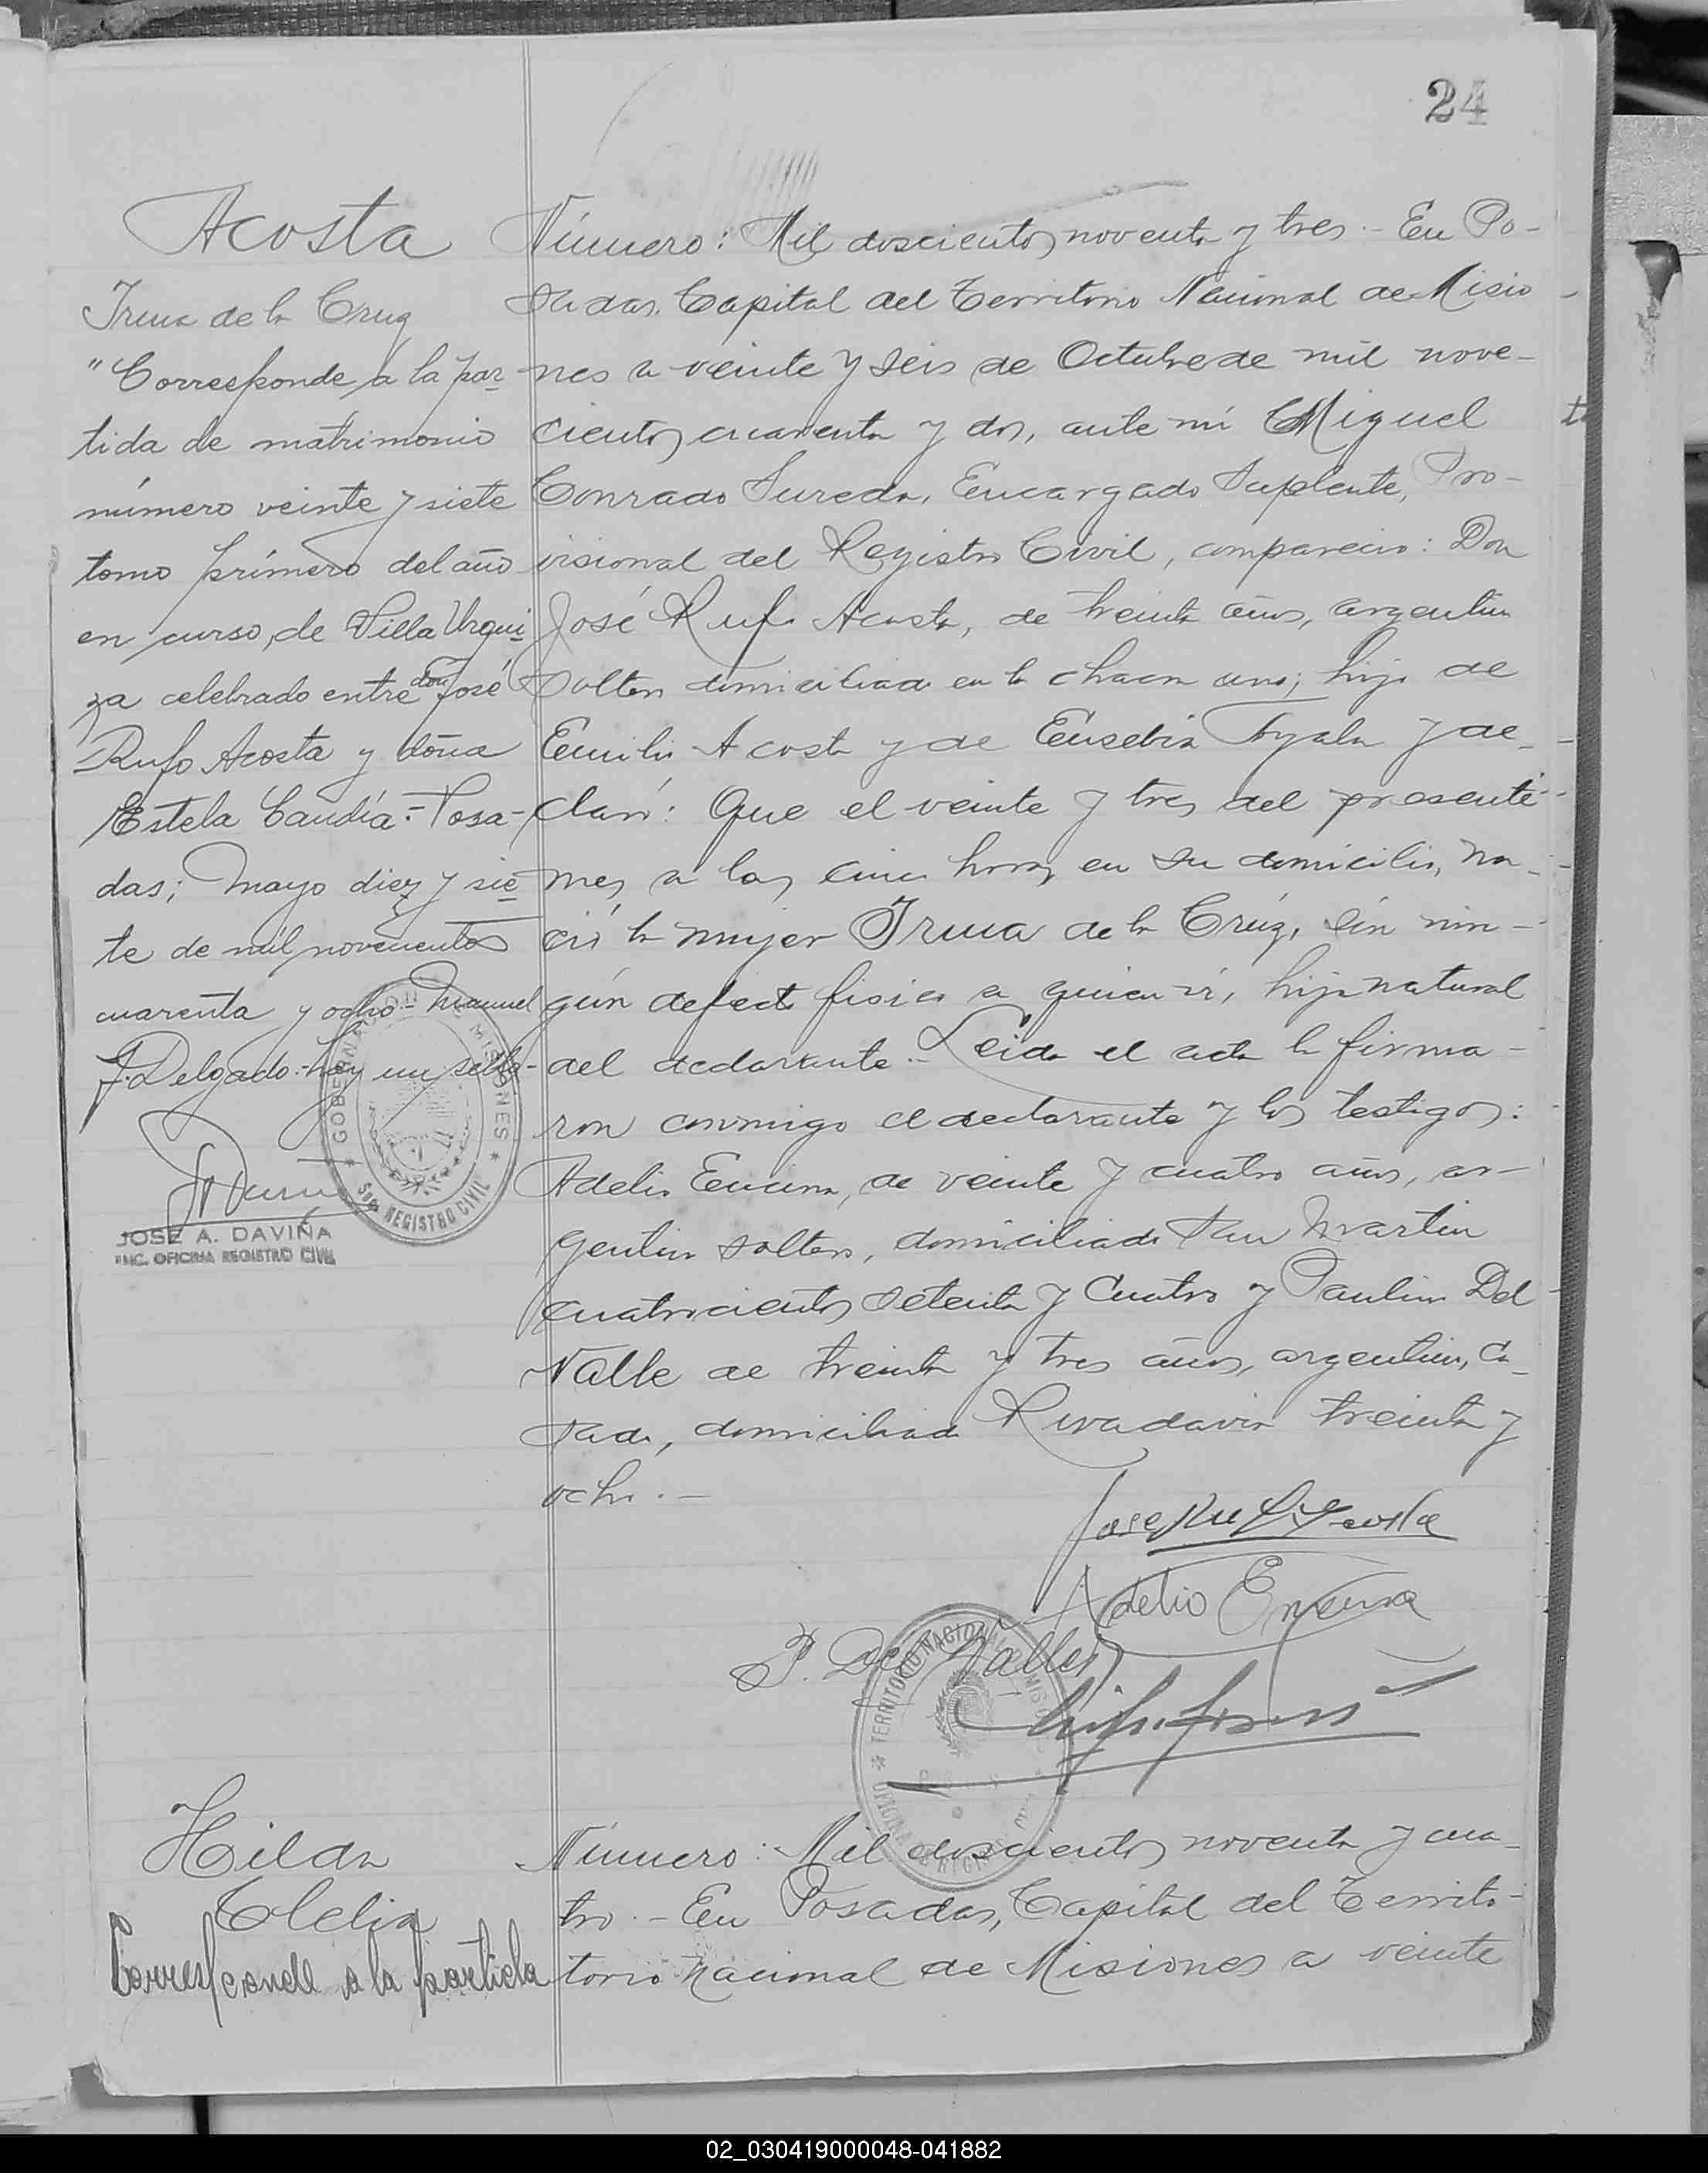 24
Acosta
Irma de la Cruz
"Corresponde a la par-
tida de matrimonio
número veinte y siete
tomo primero del año
en curso, de Villa Urqui
za celebrado entre don José
Rufo Acosta y doña
Estela Candía.- Posa-
das; Mayo diez y sie
te de mil novecientos
cuarenta y ocho - Manuel
J. Delgado.- hay un sello-
GOBERNACION MISIONES
REGISTRO CIVIL
JOSE A. DAVIÑA
ENC. OFICINA REGISTRO CIVIL
Número: Mil doscientos noventa y tres.- En Po-
sadas, Capital del Territorio Nacional de Misio-
nes a veinte y seis de Octubre de mil nove-
cientos cuarenta y dos, ante mí Miguel
Conrado Sureda, Encargado Suplente, Pro-
visional del Registro Civil, compareció: Don
José Rufo Acosta, de treinta años, argentino
soltero domiciliado en la chacra uno; hijo de
Emilio Acosta y de Eusebia Ayala y de-
claró: Que el veinte y tres del presente
mes a las cinco horas en su domicilio, na-
ció la mujer Irma de la Crúz, sin nin-
gún defecto fisico a quien ví, hija natural
del declarante.- Leida el acta la firma-
ron conmigo el declarante y los testigos:
Adelio Encina, de veinte y cuatro años, ar-
gentino soltero, domiciliado San Martin
cuatrocientos setenta y cuatro y Paulino Del
Valle de treinta y tres años, argentino, ca-
sado, domiciliado Rivadavia treinta y
ocho.-
Jose Rufo Acosta
Adelio Encina
P. Del Valle
TERRITORIO NACIONAL MISIONES
OFICINA DE REGISTRO CIVIL
Hilda
Clelia
Corresponde a la partida
Número: Mil doscientos noventa y cua-
tro.- En Posadas, Capital del Territo-
torio Nacional de Misiones a veinte
02_030419000048-041882